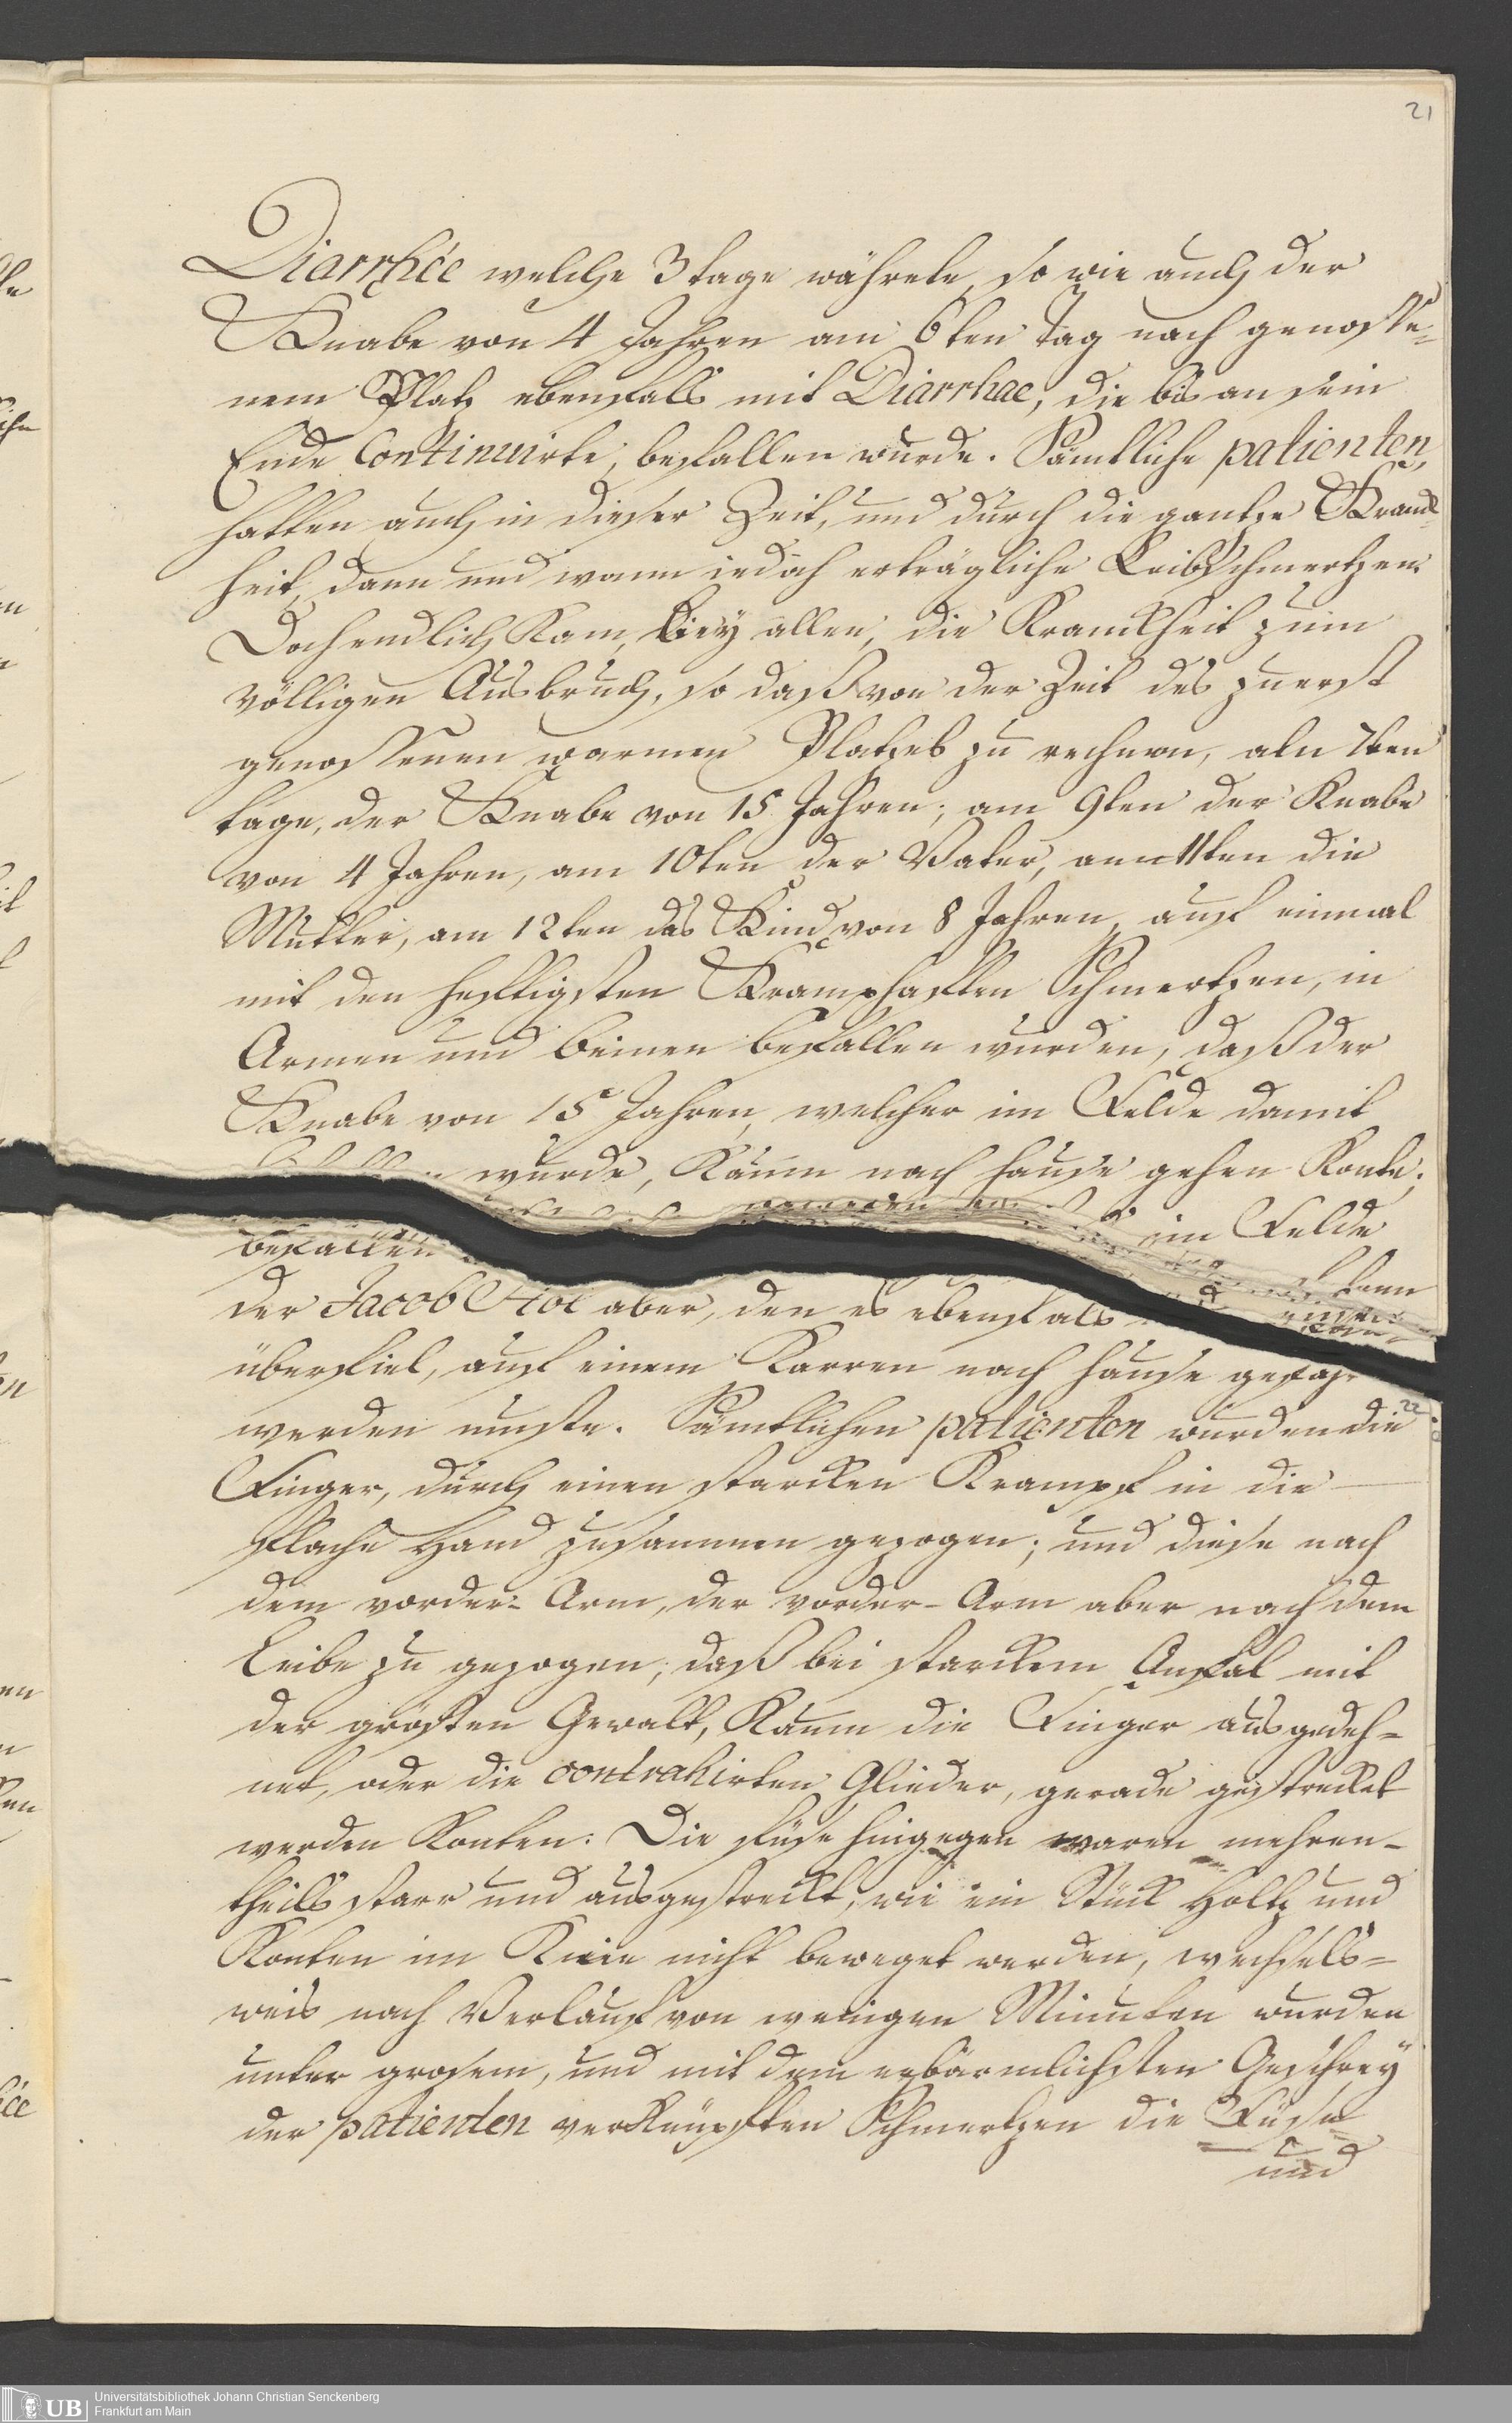 21
Diarrhée welche 3 tage währete, so wie auch der
Knabe von 4 Jahren am 6ten Tag nach genosse-
nem Platz ebenfalls mit Diarrhae, die bis an sein
Ende Continuirte, befallen wurde. Sämtliche patienten,
hatten auch in dieser Zeit, und durch die gantze Kranck-
heit, dann und wann iedoch erträgliche Leibschmertzen.
Doch endlich Kam, bey allen, die Kranckheit zum
völligen Ausbruch, so daß von der Zeit des zuerst
genossenen warmen Platzes zu rechnen, am 7ten
tage, der Knabe von 15 Jahren; am 9ten der Knabe
von 4 Jahren, am 10ten der Vater, am 11ten die
Mutter, am 12ten das Kind von 8 Jahren, auf einmal
mit den hefftigsten Kramphafften Schmertzen, in
Armen und Beinen befallen wurden, daß der
Knabe von 15 Jahren, welcher im Felde damit
wurde, Kaum nach Hause gehen Konte;
im Felde
befallen
der Jacob aber, den es ebenfals
überfiel, auf einem Karren nach Hause
22
werden muste. Sämtlichen patienten wurden die
Finger, durch einen starcken Krampf in die
flache Hand zusammen gezogen; und diese nach
dem vorder-Arm, der vorder-Arm aber nach dem
Leibe zu gezogen, daß bei starckem Anfal mit
der grösten Gewalt, Kaum die Finger ausgedeh-
net, oder die contrahirten Glieder, gerade gestrecket
werden Konten. Die Füse hingegen waren mehren-
theils starr und ausgestreckt, wie ein Stück Holtz und
Konten im Knie nicht beweget werden, wechsels-
weis nach Verlauf von wenigen Minuten wurden
unter grosem, und mit dem erbärmlichsten Geschrey
der patienten verknüpften Schmertzen die Füse
und
UB
Universitätsbibliothek Johann Christian Senckenberg
Frankfurt am Main